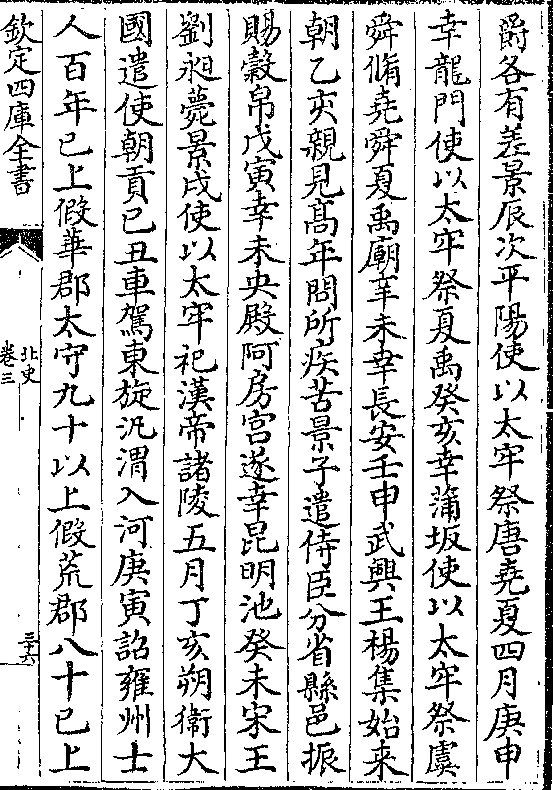 爵各有差景辰次平陽使以太牢祭唐堯夏四月庚申
幸龍門使以太牢祭夏禹癸亥幸蒲坂使以太牢祭虞
舜脩堯舜夏禹廟辛未幸長安壬申武興王楊集始来
朝乙亥親見髙年問所疾苦景子遣侍臣分省縣邑振
賜穀帛戊寅幸未央殿阿房宮遂幸昆明池癸未宋王
劉昶薨景戌使以太牢祀漢帝諸陵五月丁亥朔衞大
國遣使朝貢已丑車駕東旋汎渭入河庚寅詔雍州士
人百年已上假華郡太守九十以上假荒郡八十已上
欽定四庫全書
北史
卷三
三十六